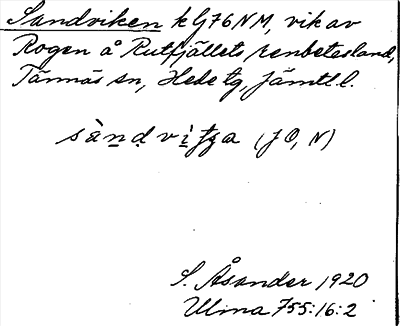 Sandviken k G76NM, vik av
Rogen å Rutfjällets renbetesland,
Tännäs sn, Hede tg, Jämtl. l.
sàndvi̱ṯʃa (JO, N)
S. Åsander 1920
Ulma 755:16:2